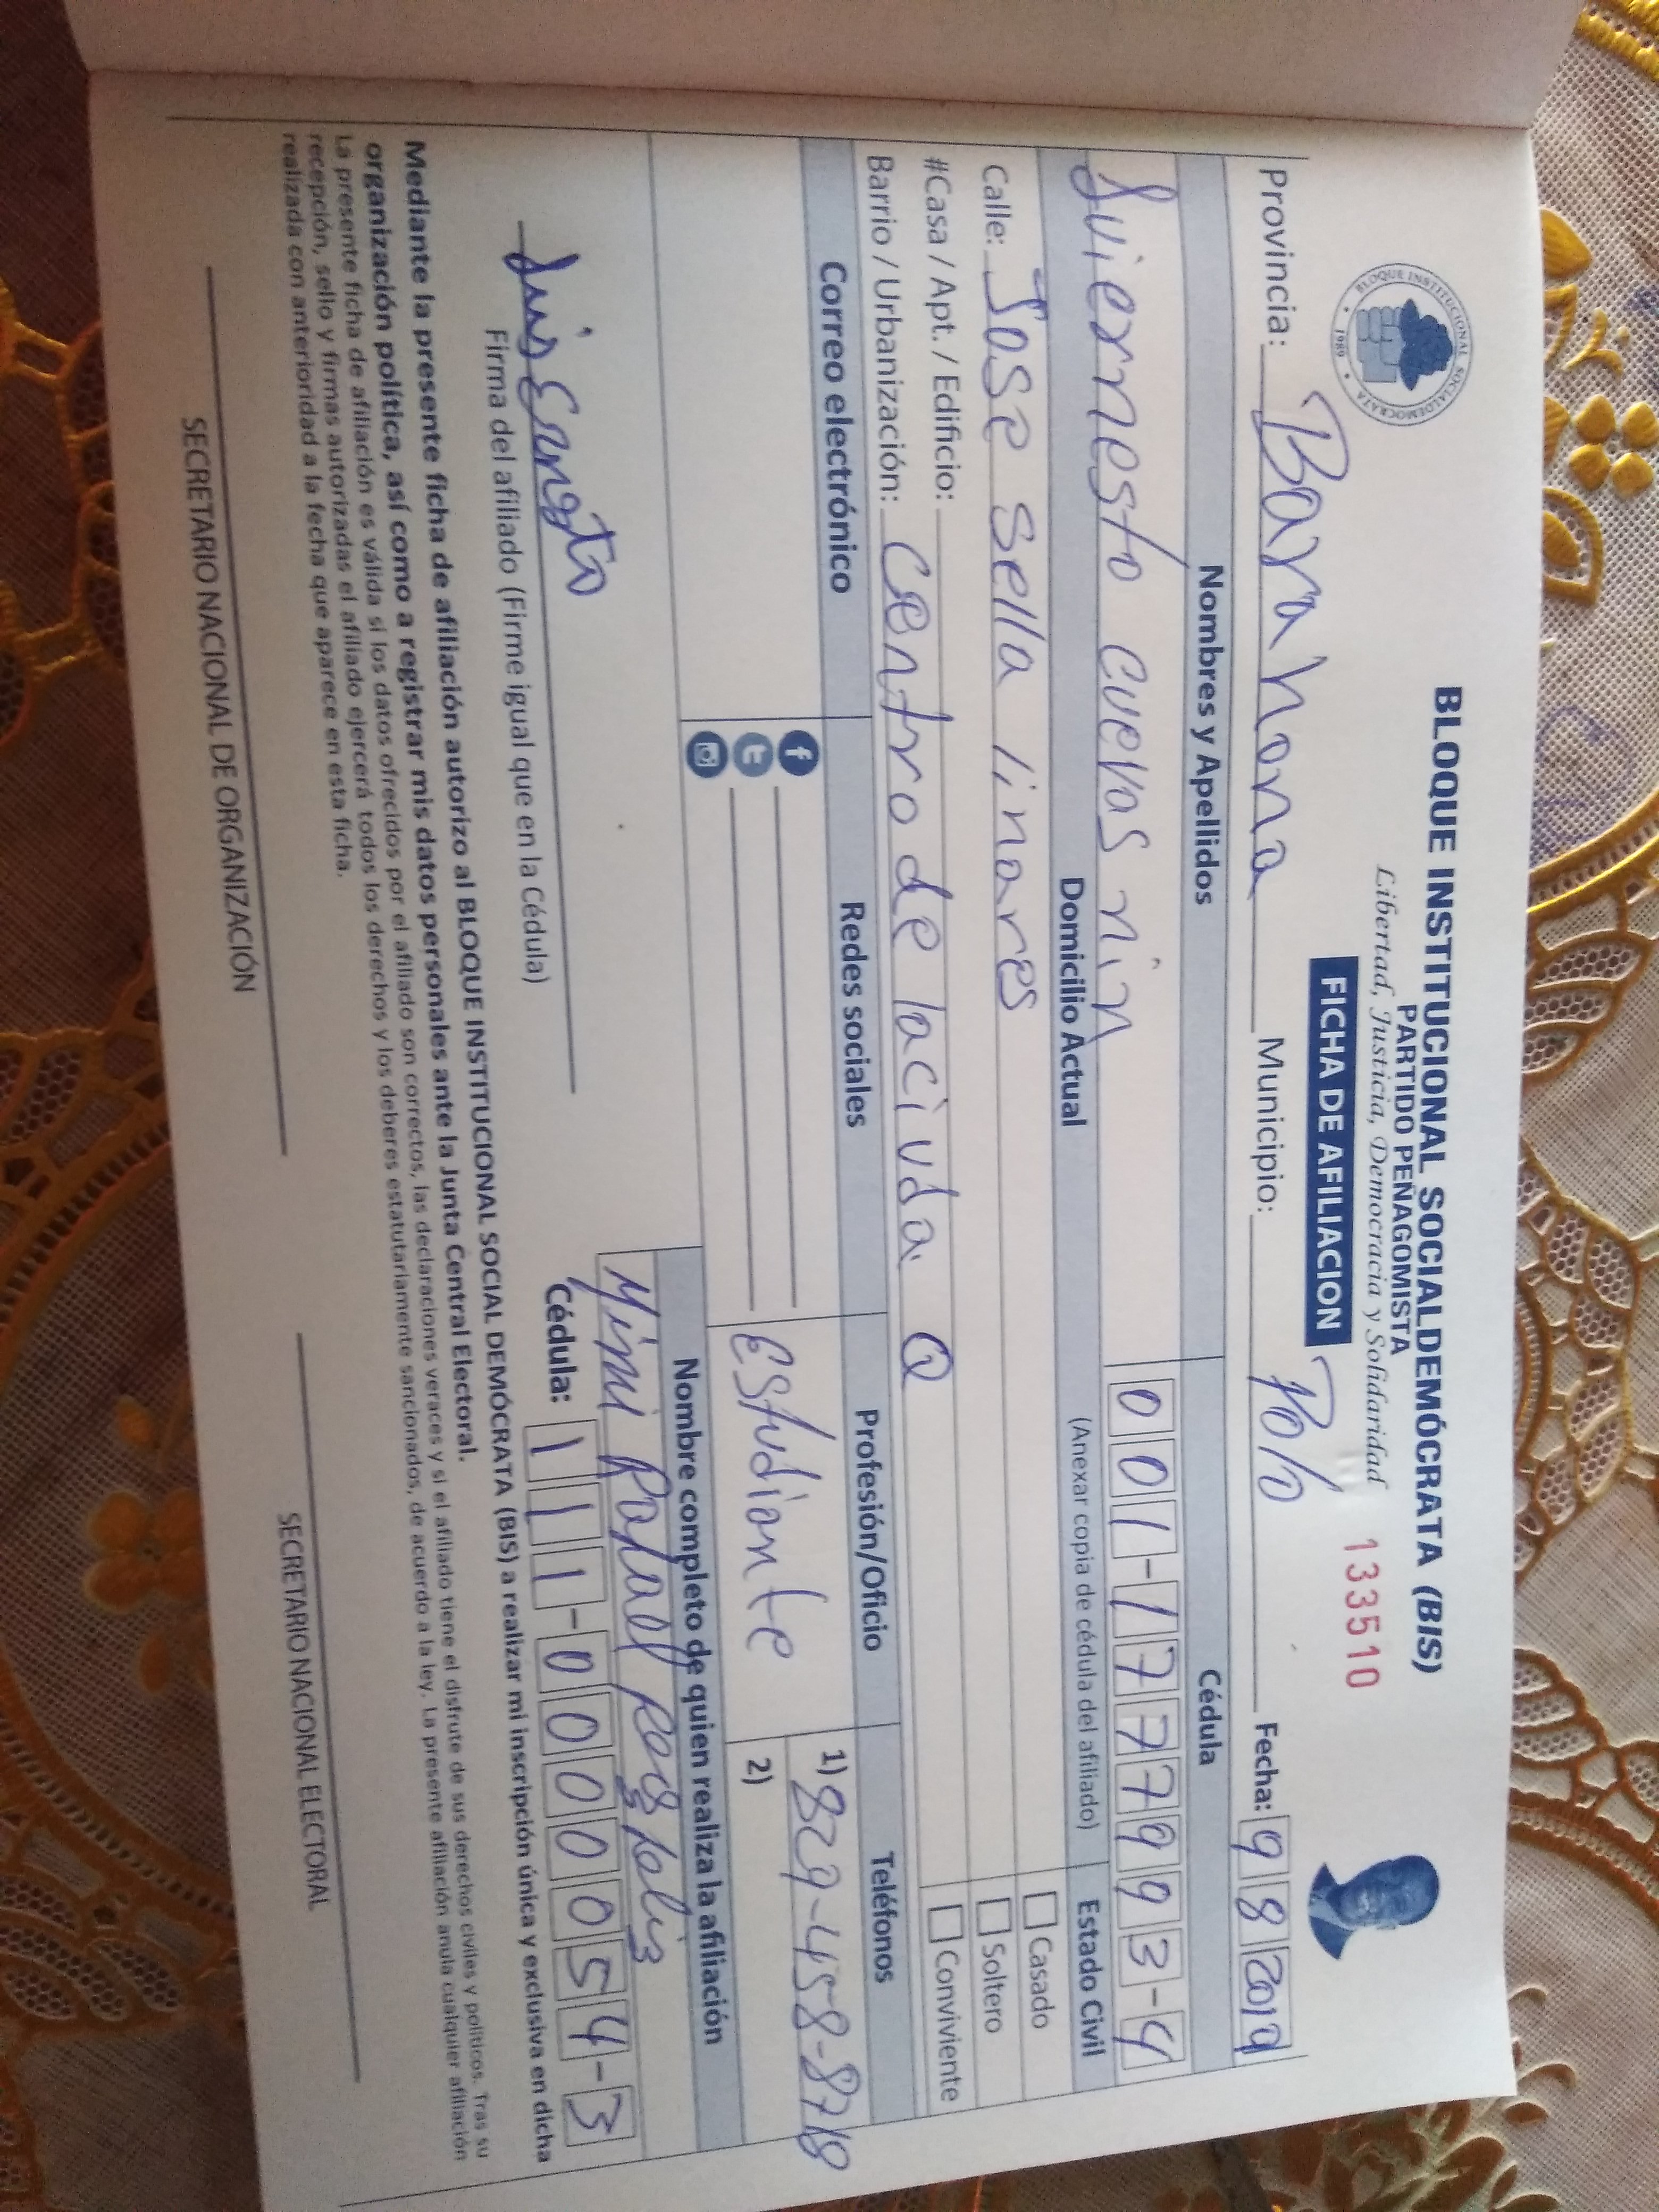 BLOQUE INSTITUCIONAL SOCIALDEMÓCRATA (BIS)
PARTIDO PEÑAGOMISTA
Libertad, Justicia, Democracia y Solidaridad
BLOQUE INSTITUCIONAL SOCIALDEMOCRATA
1989
FICHA DE AFILIACION
133510
Provincia: Barahona Municipio: Polo Fecha: 9 8 2019
Nombres y Apellidos Cédula
Luiernesto cuevas nin 001-1777993-4
Domicilio Actual (Anexar copia de cédula del afiliado) Estado Civil
Calle: Jose Sella linares Casado
#Casa / Apt. / Edificio: Soltero
Barrio / Urbanización: Centro de laciuda Conviviente
Correo electrónico Redes sociales Profesión/Oficio Teléfonos
Estudiante 1) 829-458-8718
2)
Nombre completo de quien realiza la afiliación
Luis Ernesto
Firma del afiliado (Firme igual que en la Cédula)
Cédula: 111-0000054-3
Mediante la presente ficha de afiliación autorizo al BLOQUE INSTITUCIONAL SOCIAL DEMÓCRATA (BIS) a realizar mi inscripción única y exclusiva en dicha
organización política, así como a registrar mis datos personales ante la Junta Central Electoral.
La presente ficha de afiliación es válida si los datos ofrecidos por el afiliado son correctos, las declaraciones veraces y si el afiliado tiene el disfrute de sus derechos civiles y políticos. Tras su
recepción, sello y firmas autorizadas el afiliado ejercerá todos los derechos y los deberes estatutariamente sancionados, de acuerdo a la ley. La presente afiliación anula cualquier afiliación
realizada con anterioridad a la fecha que aparece en esta ficha.
SECRETARIO NACIONAL DE ORGANIZACIÓN SECRETARIO NACIONAL ELECTORAL